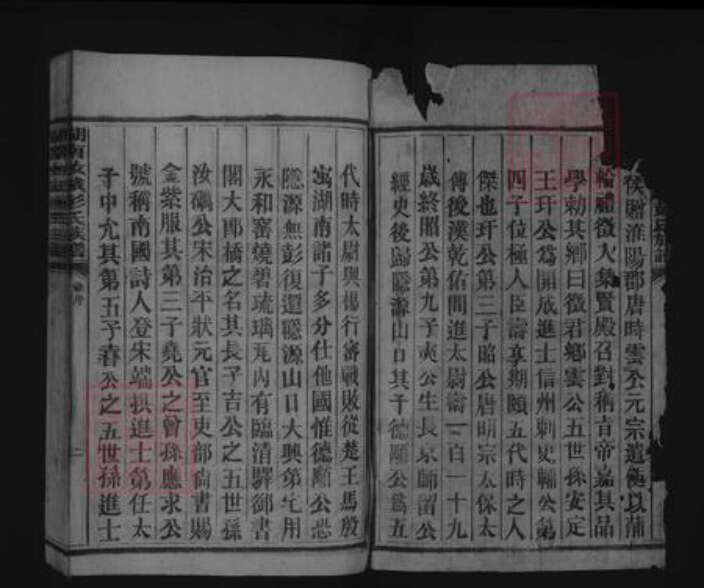 侯贈淮陽郡唐時雲公元宗遣使以蒲
輪禮徵入集賢殿召對稱旨帝嘉其品
學勅其鄉曰徵君鄉雲公五世孫安定
王玕公為開成進士信州刺史輔公第
四子位極人臣壽享期頤五代時之人
傑也玕公第三子昭公唐明宗太保太
傅後漢乾佑間進太尉壽一百一十九
歲終昭公第九子爽公生長京師留公
經史後歸隱源山口其子德顒公為五
代時太尉與楊行審戰敗從楚王馬殷
寓湖南諸子多分仕他國惟德顒公恐
隱源無彭復還隱源山口大興第宅用
永和窰燒碧琉璃瓦內有臨清驛御書
閣大郎橋之名其長子吉公之五世孫
汝礪公宋治平狀元官至吏部尚書賜
金紫服其第三子堯公之曾孫應求公
號稱南國詩人登宋端拱進士第任太
子中允其第五子春公之五世孫進士
彭氏族譜
二